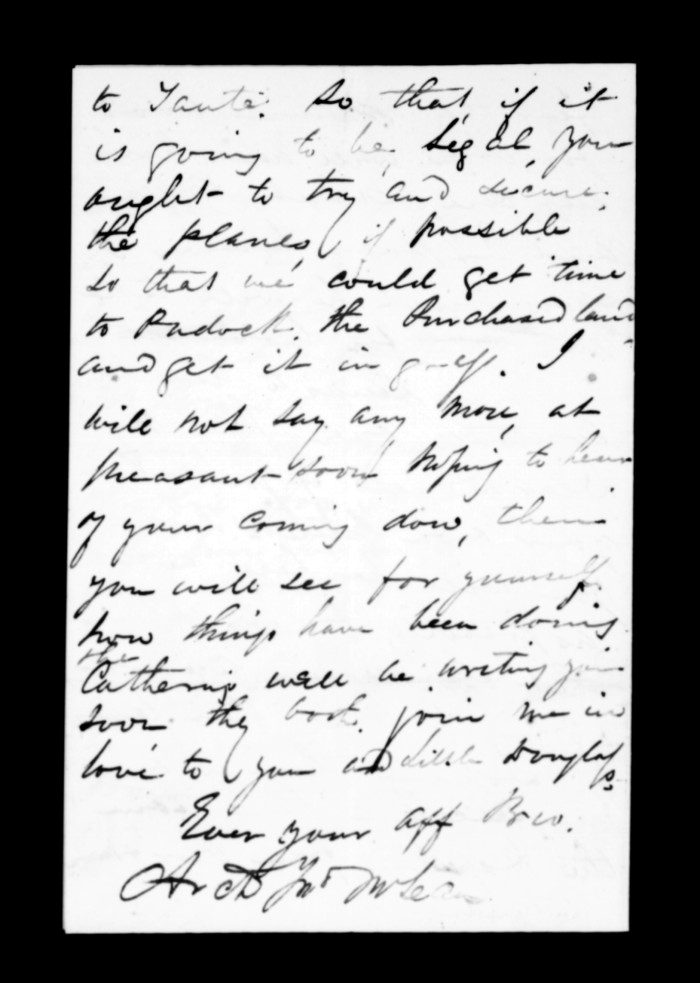 to Tauta. so that if it
is going to be legal, you
aught to try and secure
the planes, if possible
so that we could get time
to Padock. the Purchased land
and get it in grass. I
will not say any more, at
preasant soon hoping to hear
of your coming dow, then
you will see for yourself
how things have been doing
the
Catherins will be writing you
soon they both join me in
love to you and little Douglass
Ever your aff Bro.
Archd Jno McLean